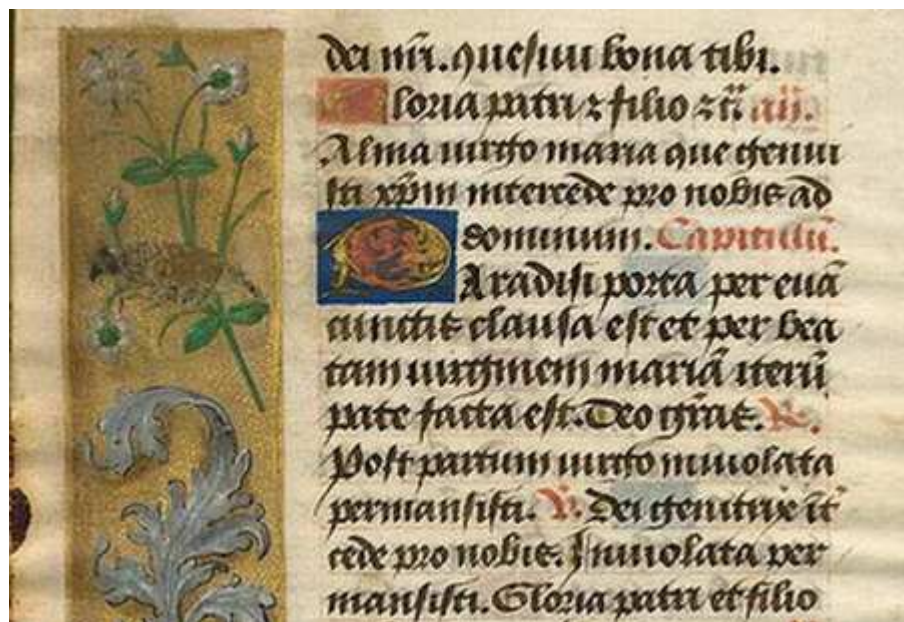 dei nr̄i. quesiui bona tibi.
Gloria patri ⁊ filio ⁊ c̄ an̄.
Alma uirgo maria que genui
sti xp̄m intercede pro nobis ad
dominum. Capitulū.
Paradisi porta per euā
cunctis clausa est et per bea
tam uirginem mariā iterū
pate facta est. Deo gr̄as. R.
Post partum uirgo inuiolata
permansisti. V. Dei genitrix īt
cede pro nobis. Inuiolata per
mansisti. Gloria patri et filio